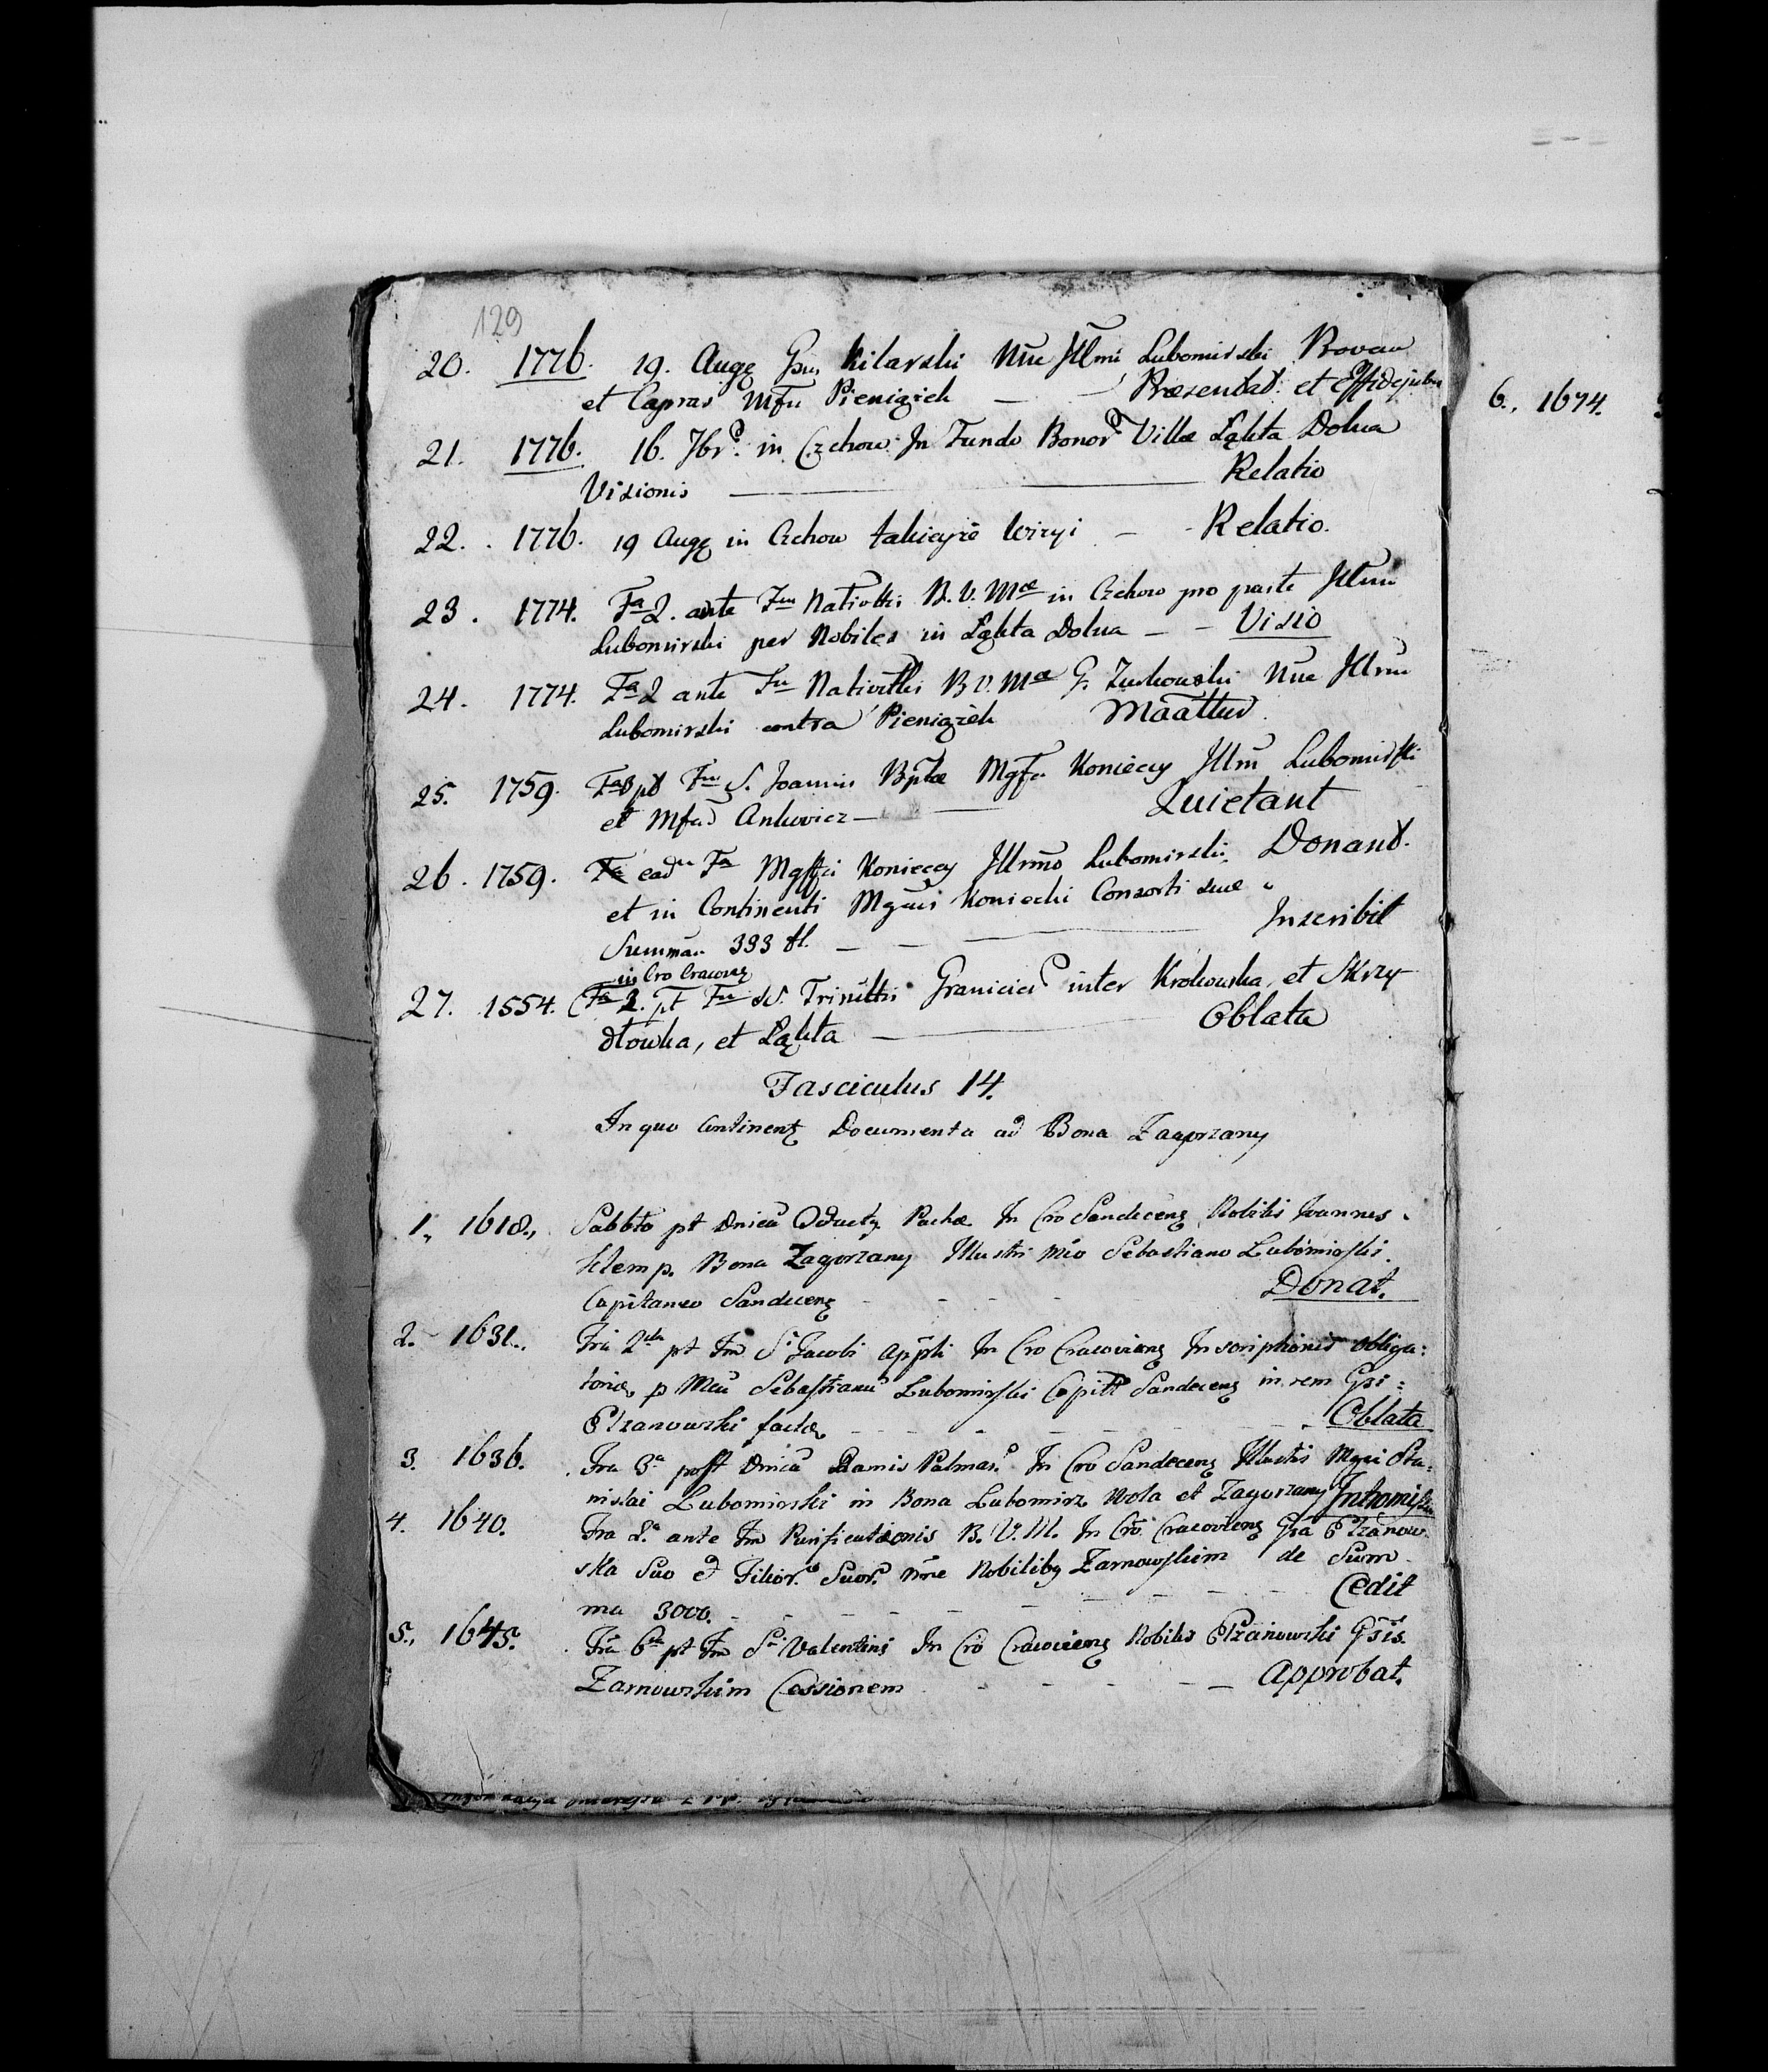 129
20. 1776. 19. Aug Gsus Kilarski Nne Illmi Lubomirski Bovem
et Capras Mfci Pieniążek — Praesentat et
21. 1776. 16. 7br. in Czchow In Fundo Bonor Villae Łąkta Dolna
Visionis — Relatio
22. 1776. 19 Aug in Czchow takieyże wizyi — Relatio.
23. 1774. Fa 2. ante Fm Nativttis B. V. Mae in Czchow pro parte Illmi
Lubomirski per Nobiles in Łąkta Dolna — Visio
24. 1774. Fa 2 ante Fm Nativttis B V. Mae G. Zurkowski Nne Illmi
Lubomirski contra Pieniążek
25. 1759. Fa 3 pt Fm S. Joannis Bptae Mgfci Koniecky Illm Lubomirski
et Mfcum Ankwicz — Quietant
26. 1759. eadem Fa Mgffci Koniecky Illrmo Lubomirski Donant.
et in Continenti Mgcus Koniecki Consorti suae
Summam 333 fl. — Inscribit
in Cro Cracoviens
27. 1554. Fa 2. pt Fm SS. Trinittis Granicier inter Krolowka, et Skrzy-
dłowka, et Łąkta — Oblata
Fasciculus 14.
In quo continent Documenta ad Bona Zagorzany
1., 1618., Sabbto pt Dnicam Oductg Paschae In Cro Sandecens Nobilis Joannes
Klemp. Bona Zagorzany Illustri Mco Sebastiano Lubomirski
Capitaneo Sandecens - - - Donat.
2. 1631.. Fria 2da pt Fm Sti Jacobi Appli In Cro Cracoviens Inscriptionis obliga:
toriae p Mcum Sebastianum Lubomirski Capit Sandecens in rem Gsi:
Ełzanowski factae - - - Oblata
3. 1636. Fria 3a post Dnicam Ramis Palmar. In Cro Sandecens Illustris Mgci Sta:
nislai Lubomirski in Bona Lubomirz Wola et Zagorzany Intromissio
4. 1640. Fria 2a ante Fm Purificationis B. V. M. In Cro Cracoviens Gsa Ełzanow-
ska Suo et Filior. Suor. Nne Nobilibg Zarnowskim de Sum
ma 3000. - - - Cedit
5., 1645. Fria 6ta pt Fm Sti Valentini In Cro Cracoviens Nobilis Ełzanowski Gsis.
Zarnowskim Cessionem - - - Approbat.
6., 1674.